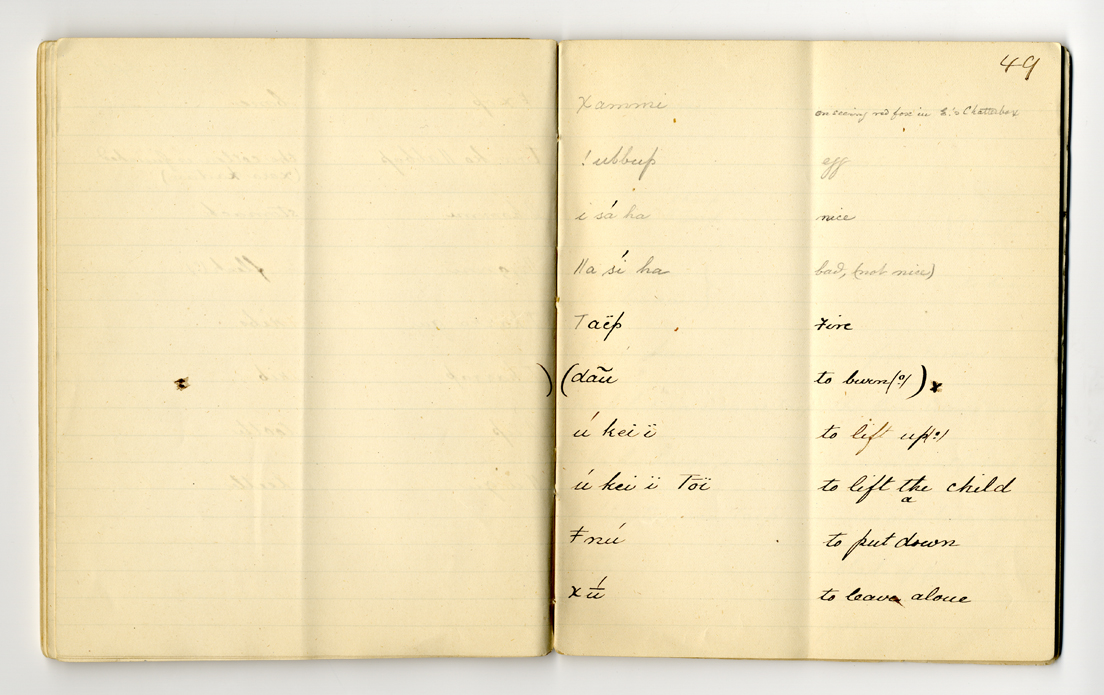 49
Xammi on seeing red fox in L.'s Chatterbox
!ubbup egg
i sá ha nice
ǁa śi ha bad, (not nice)
Taëp Fire
) (daũ to burn(?) ) x
x
ú kei ï to lift up(?)
ú kei ï Töï to lift the child
a
ǂnú to put down
x ú to leave alone